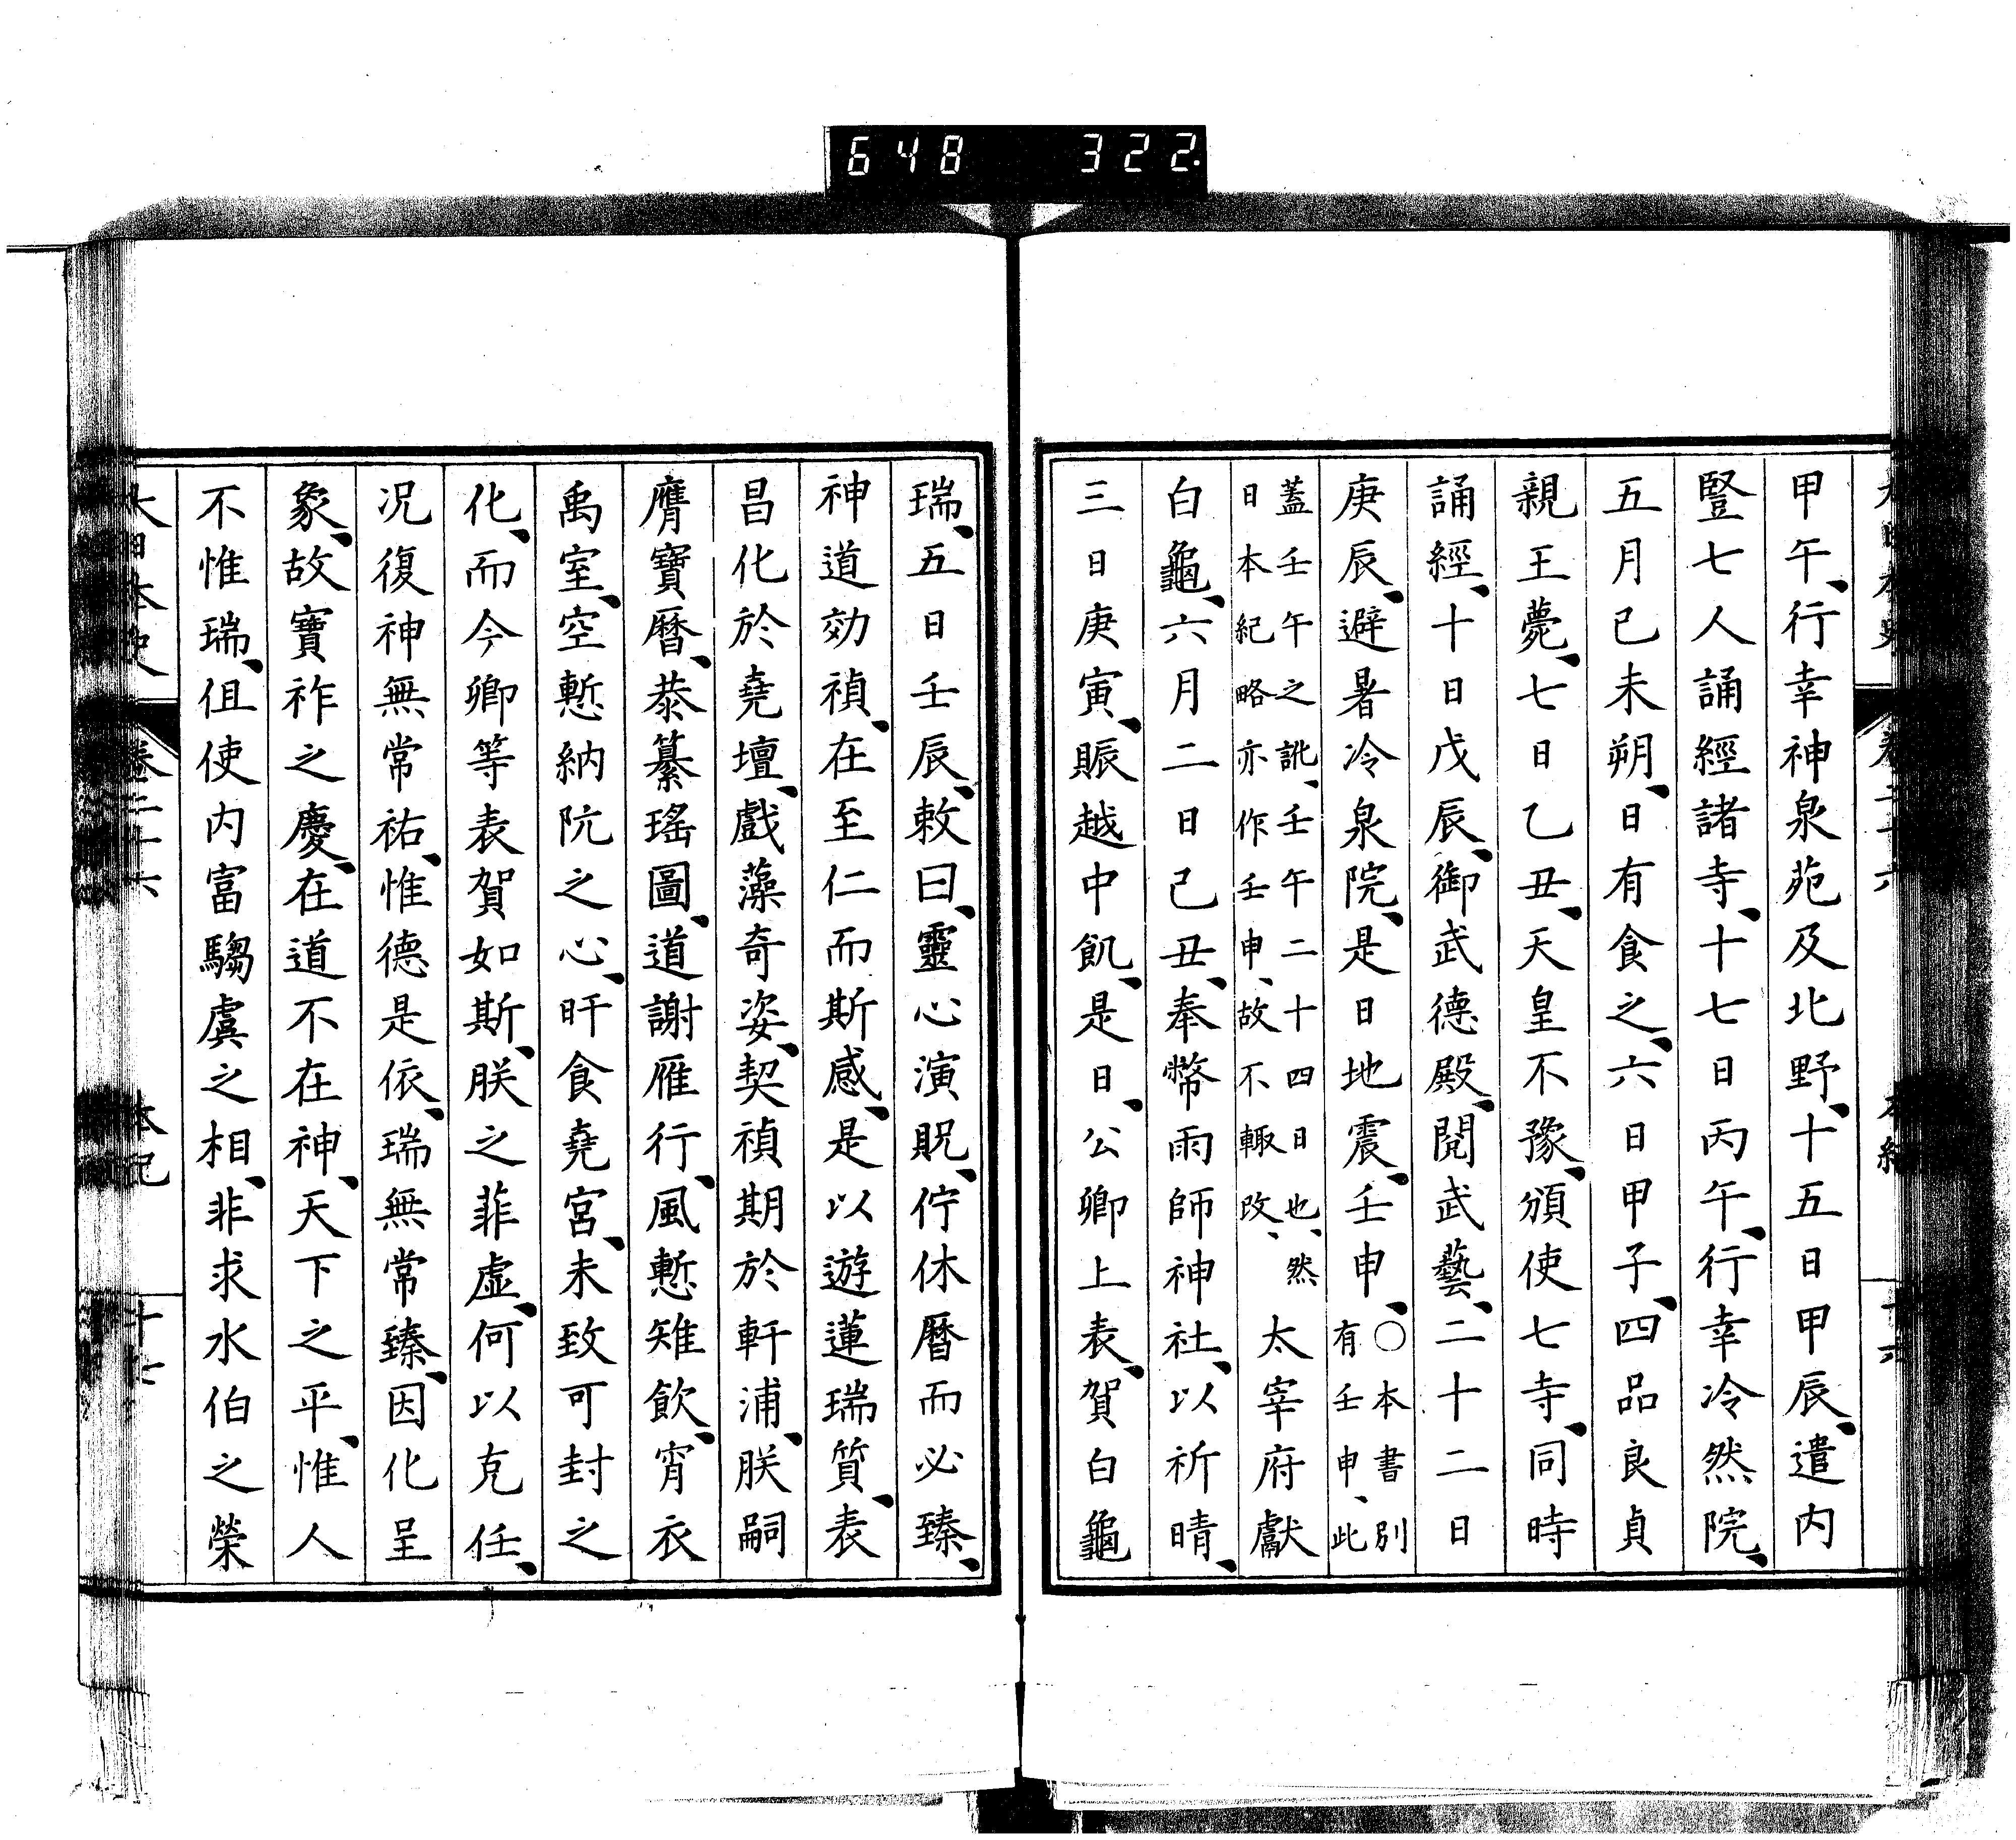 648 322
甲午、行幸神泉苑及北野、十五日甲辰、遣内
豎七人誦經諸寺、十七日丙午、行幸冷然院、
五月己未朔、日有食之、六日甲子、四品良貞
親王薨、七日乙丑、天皇不豫、頒使七寺、同時
誦經、十日戊辰、御武德殿、閱武藝、二十二日
庚辰、避暑冷泉院、是日地震、壬申、○本書別有壬申、此
蓋壬午之訛、壬午二十四日也、然日本紀略亦作壬申、故不輙改、太宰府獻
白龜、六月二日己丑、奉幣雨師神社、以祈晴、
三日庚寅、賑越中飢、是日、公卿上表、賀白龜
瑞、五日壬辰、敕曰、靈心演貺、佇休暦而必臻、
神道効禎、在至仁而斯感、是以遊蓮瑞質、表
昌化於堯壇、戲藻奇姿、契禎期於軒浦、朕嗣
膺寶暦、恭纂瑤圖、道謝雁行、風慙雉飲、宵衣
禹室、空慙納阮之心、旰食堯宮、未致可封之
化、而今卿等表賀如斯、朕之菲虛、何以克任、
況復神無常祐、惟德是依、瑞無常臻、因化呈
象、故寶祚之慶、在道不在神、天下之平、惟人
不惟瑞、但使内富騶虞之相、非求水伯之榮
大日本史 卷二十六 本紀 十七